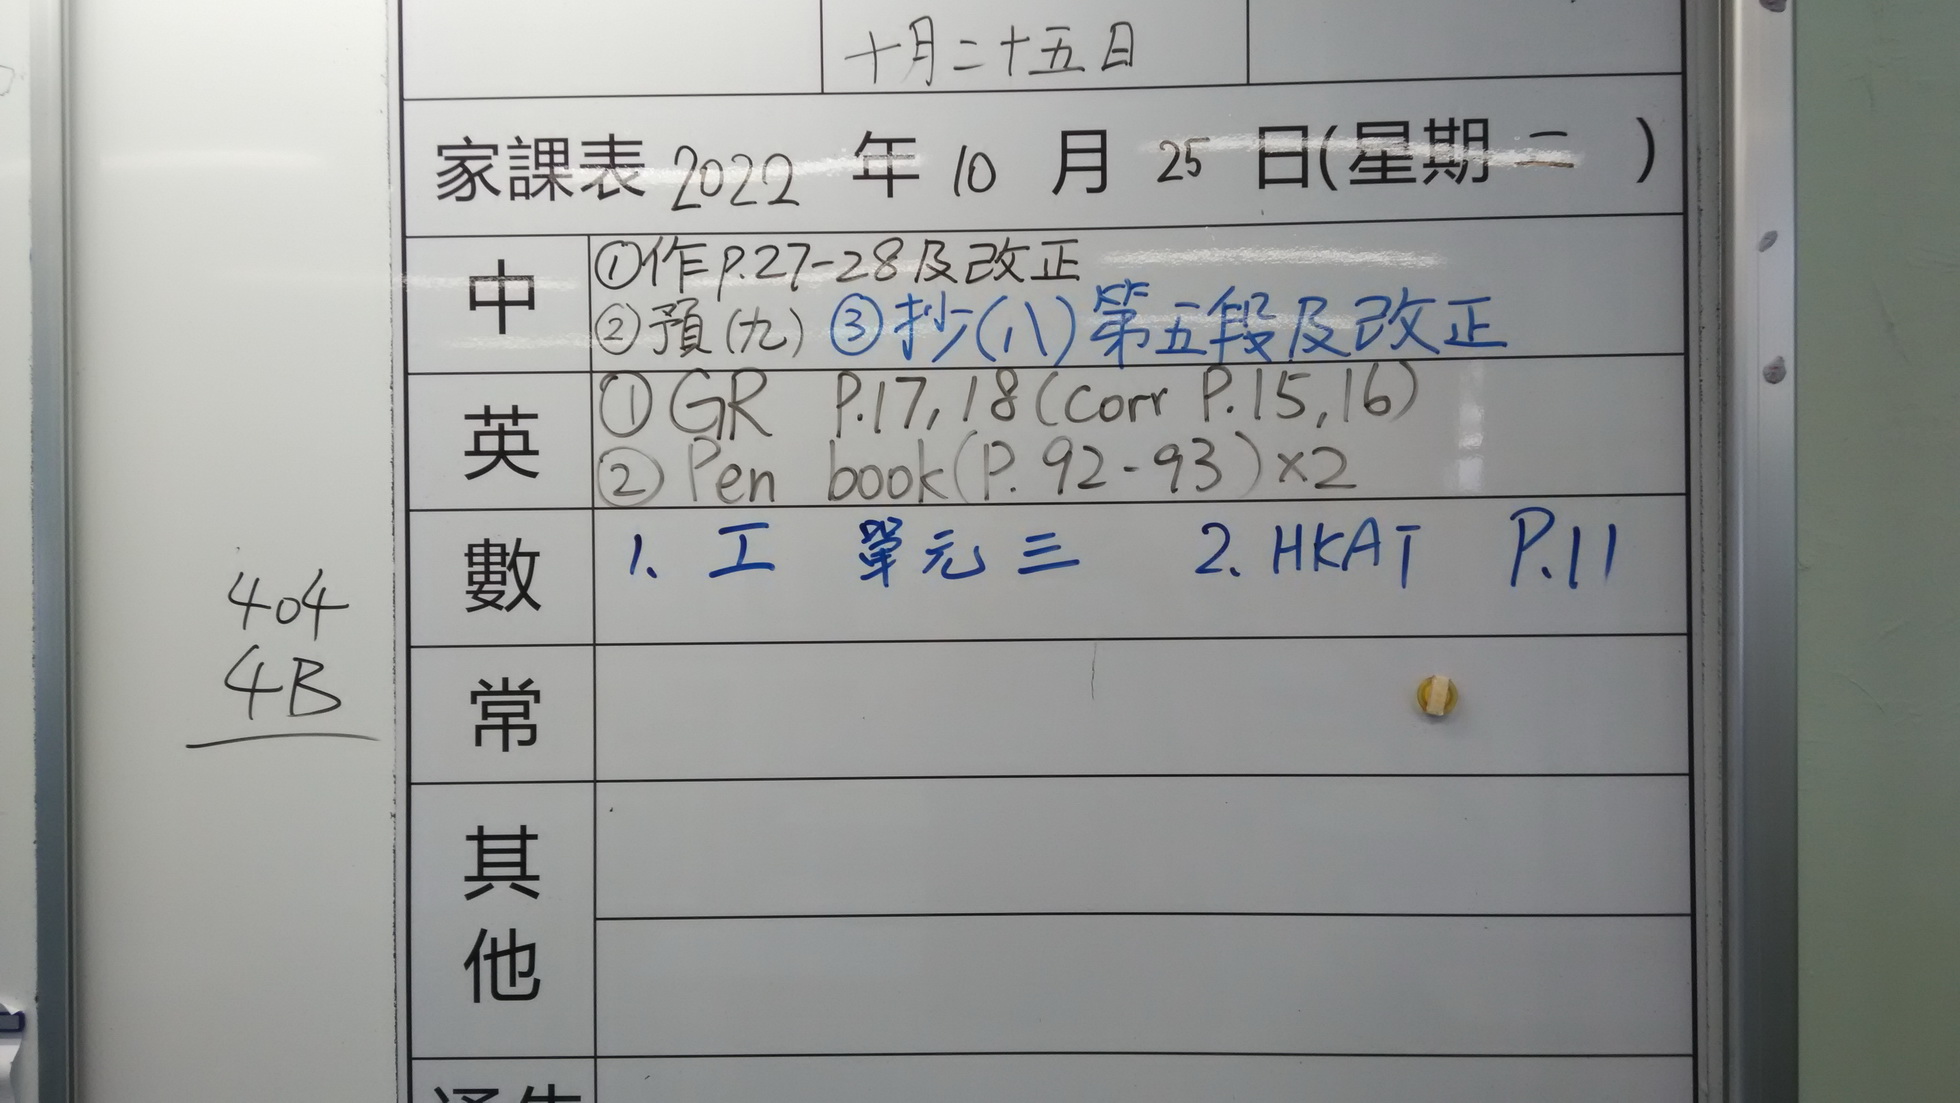 十月二十五日
家課表 2022 年 10 月 25 日(星期 二 )
中
①作P.27-28及改正
②預(九) ③抄(八)第五段及改正
英
①GR P.17,18(corr P.15,16)
②Pen book(P.92-93)×2
數
1. 工 單元三 2. HKAT P.11
404
4B
常
其
他
通告